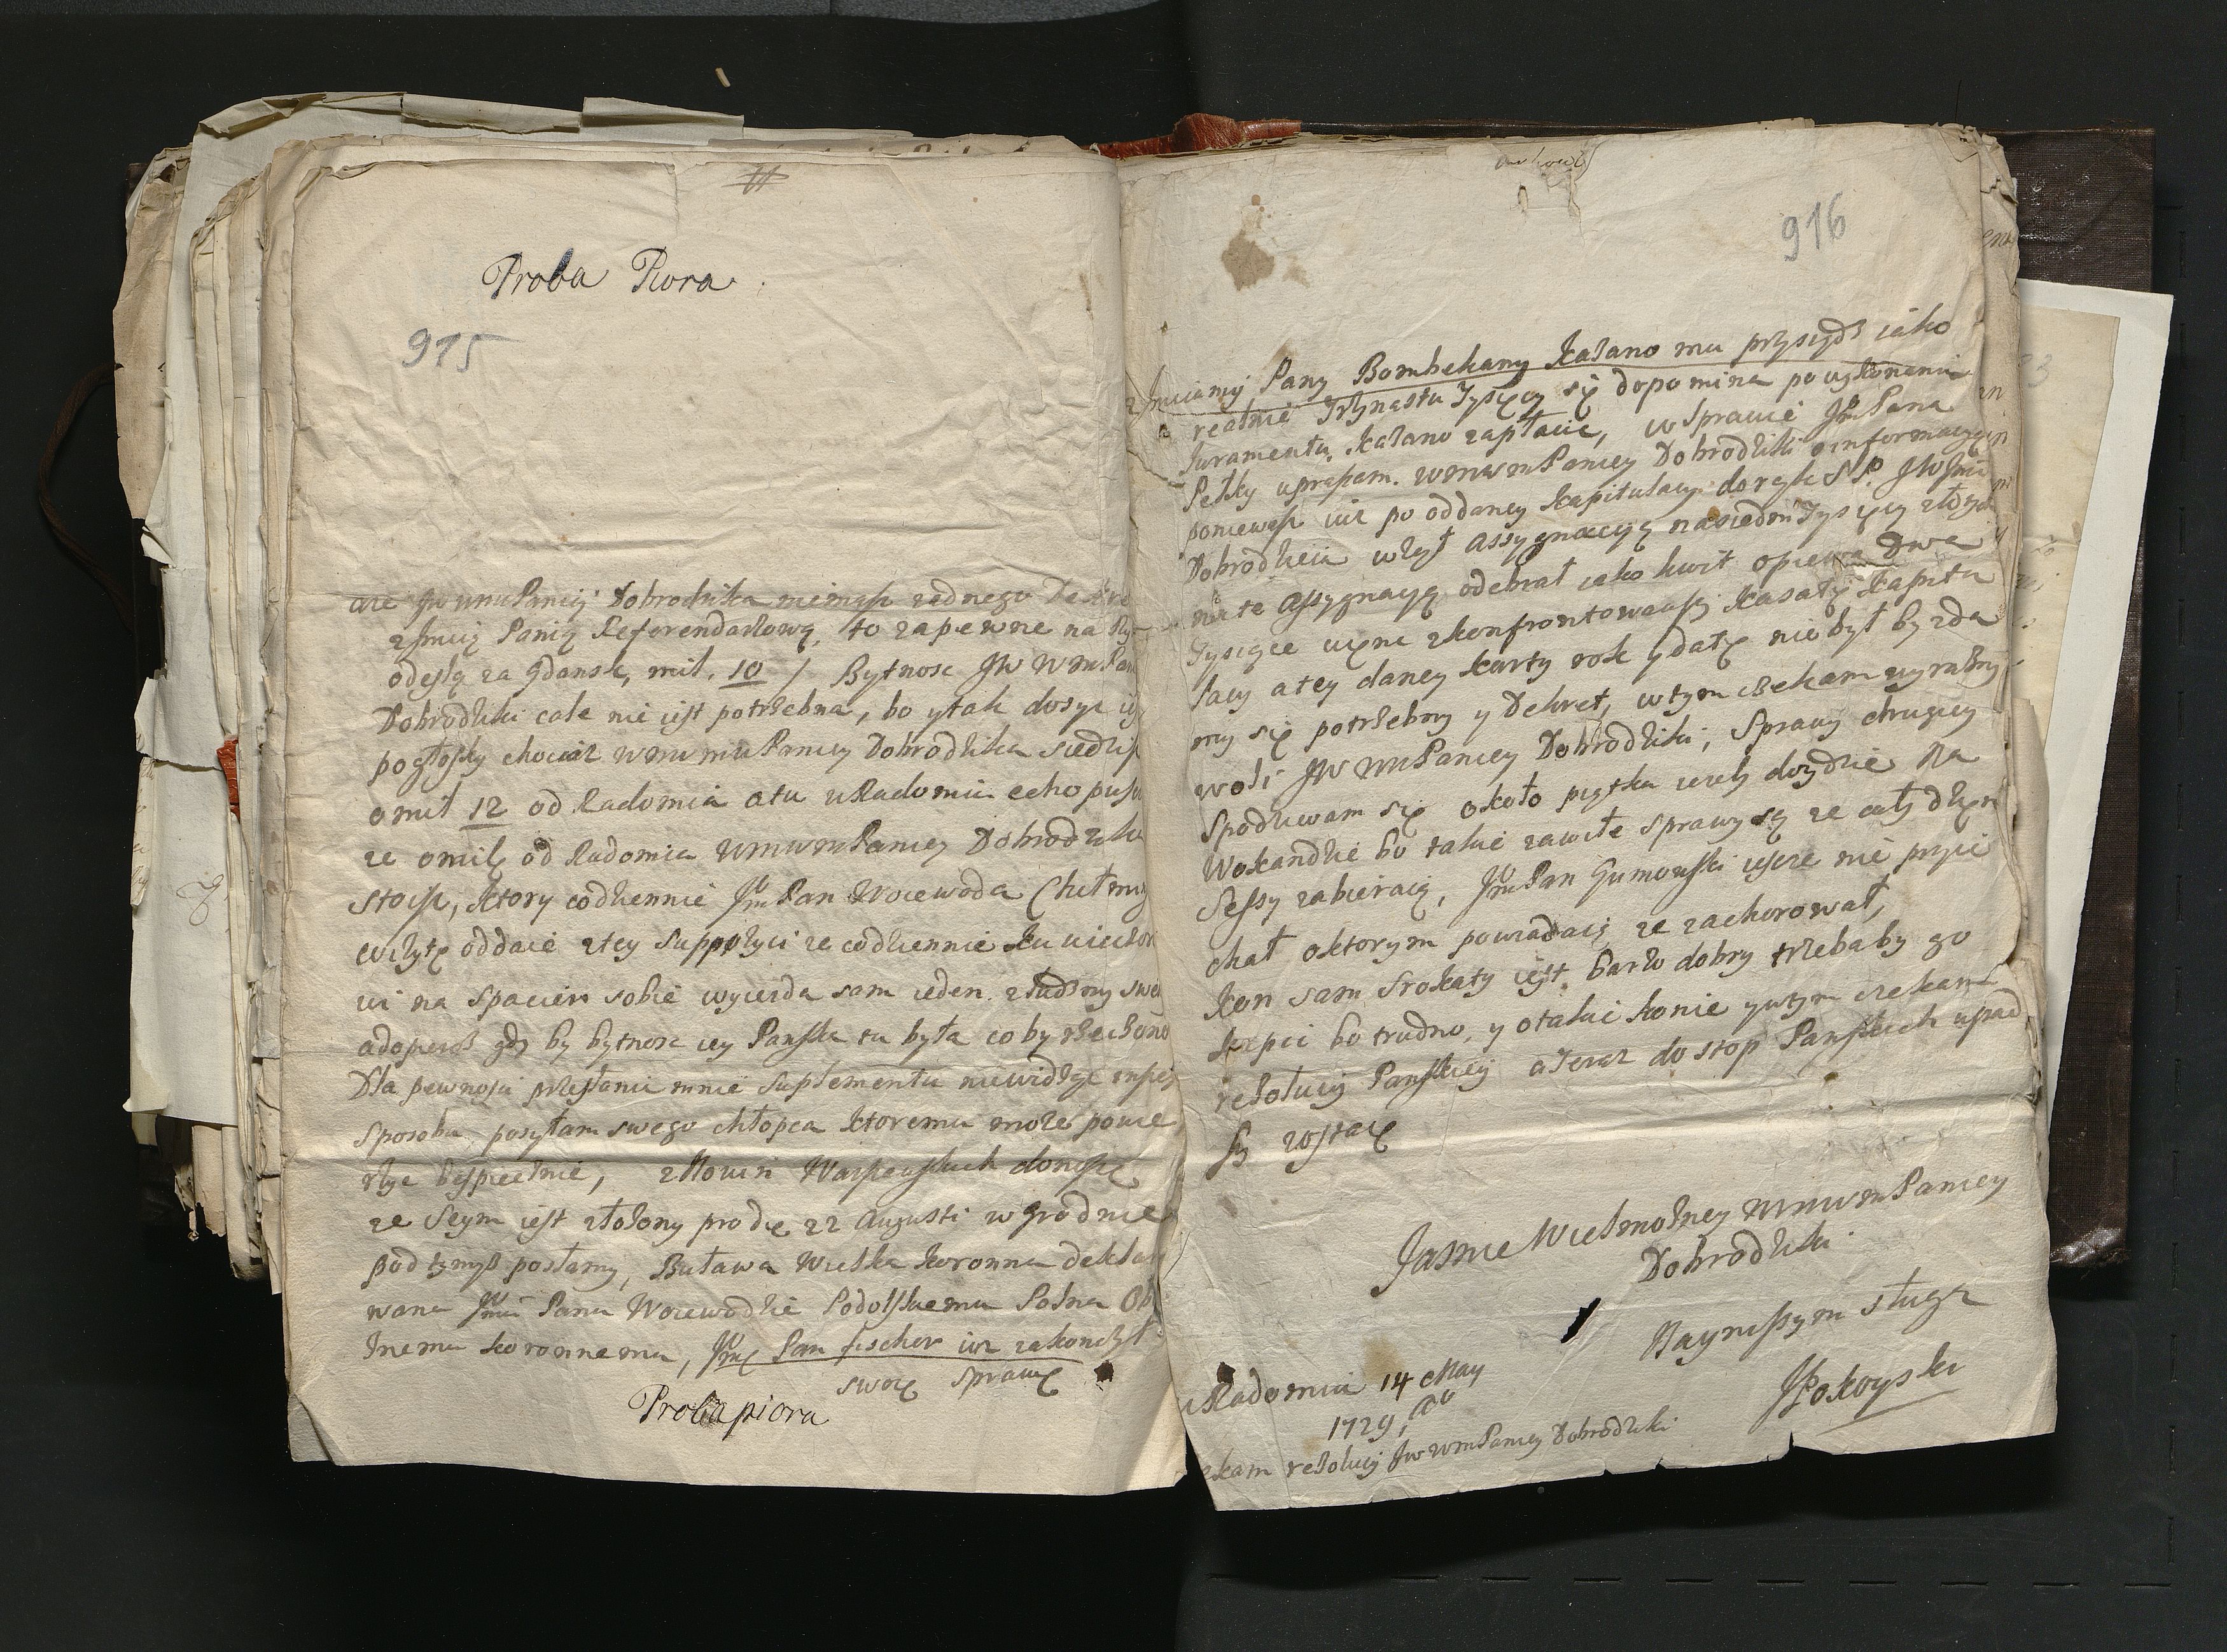 Proba Piora
915
ale Jw wmPaniey Dobrodzika niemasz zadnego Dekre
z Jmcią Panią Referendarzową, to zapewne na Ry
odeslą za Gdansk, mil. 10 / Bytnosc JW WmPani
Dobrodziki cale nie iest potrzebna, bo y tak dosyc
pogłosky chociaz wmwmPaniey Dobrodzika siedzisz
o mil 12 od Radomia a tu w Radomiu echo pusz
ze o milę od Radomia WmwmPaniey Dobrodzika
stoisz, ktory codziennie Jm Pan Woiewoda Chełmin
wizytę oddaie z tey suppozyci ze codziennie ku wieczor
wi na spacier sobie wyiezda sam ieden z ludzmy swe
a dopieroz gdy by bytnosc iey Panska tu była co by rzeczono
Dla pewnosci przesłania mnie suplementu niewidząc inszeg
sposobu posyłam swego chłopca ktoremu moze powie
rzyc bespiecznie, z Nowin Warszawskich donoszę
ze Seym iest złozony pro die 22 Augusti w Grodnie
pod tymysz posłamy, Buława Wielka koronna deklar
wana Jmci Panu Woiewodzie Podolskiemu Polna Obo
znemu koronnemu, Jmć Pan fischer iuz zakonczył
swoię sprawę
Proba piora
916
z Jmciamy Pany Bombekamy kazano mu przysiądz iako
realnie Trzynastu Tysięcy się dopomina po wykonaniu
Juramentu kazano zapłacic, w Sprawie Jm Pana
Pełky upraszam WmwmPaniey Dobrodziki o informacyą
poniewasz iuz po oddaney kapitulacy do rąk S.P. JW Jmci
Dobrodzieia wziął assygnacyą na siedm Tysięcy złotych
na te assygnacyą odebrał iako kwit opiewa Dwa
Tysiące więc zkonfrontowawszy kazały kapitu
lacy a tey daney karty rok y datę nie był by zda
my się potrzebny y Dekret, w tym czekam wyrazney
woli JW WmPaniey Dobrodziki, Sprawy drugiey
spodziwam się około piątku iezeli doydzie Na
Wokandzie bo takie zawiłe sprawy są ze cały dzien
Sessy zabieraią, Jm Pan Gumowski iescze nie przyie
chał o ktorym powiadaią ze zachorował,
kon sam srokaty iest barzo dobry trzebaby go
kupic bo trudno y o takie konie y w tym czekam
rezolucij Panskiey a Teraz do stop Panskich upad
szy zostaię
Jasnie Wielmozney WmwmPaniey
Dobrodziki
Naynisszym sługą
JPokoyski
w Radomiu 14 May
1729, Ao
czekam rezolucij Jw wmPaniey Dobrodziki